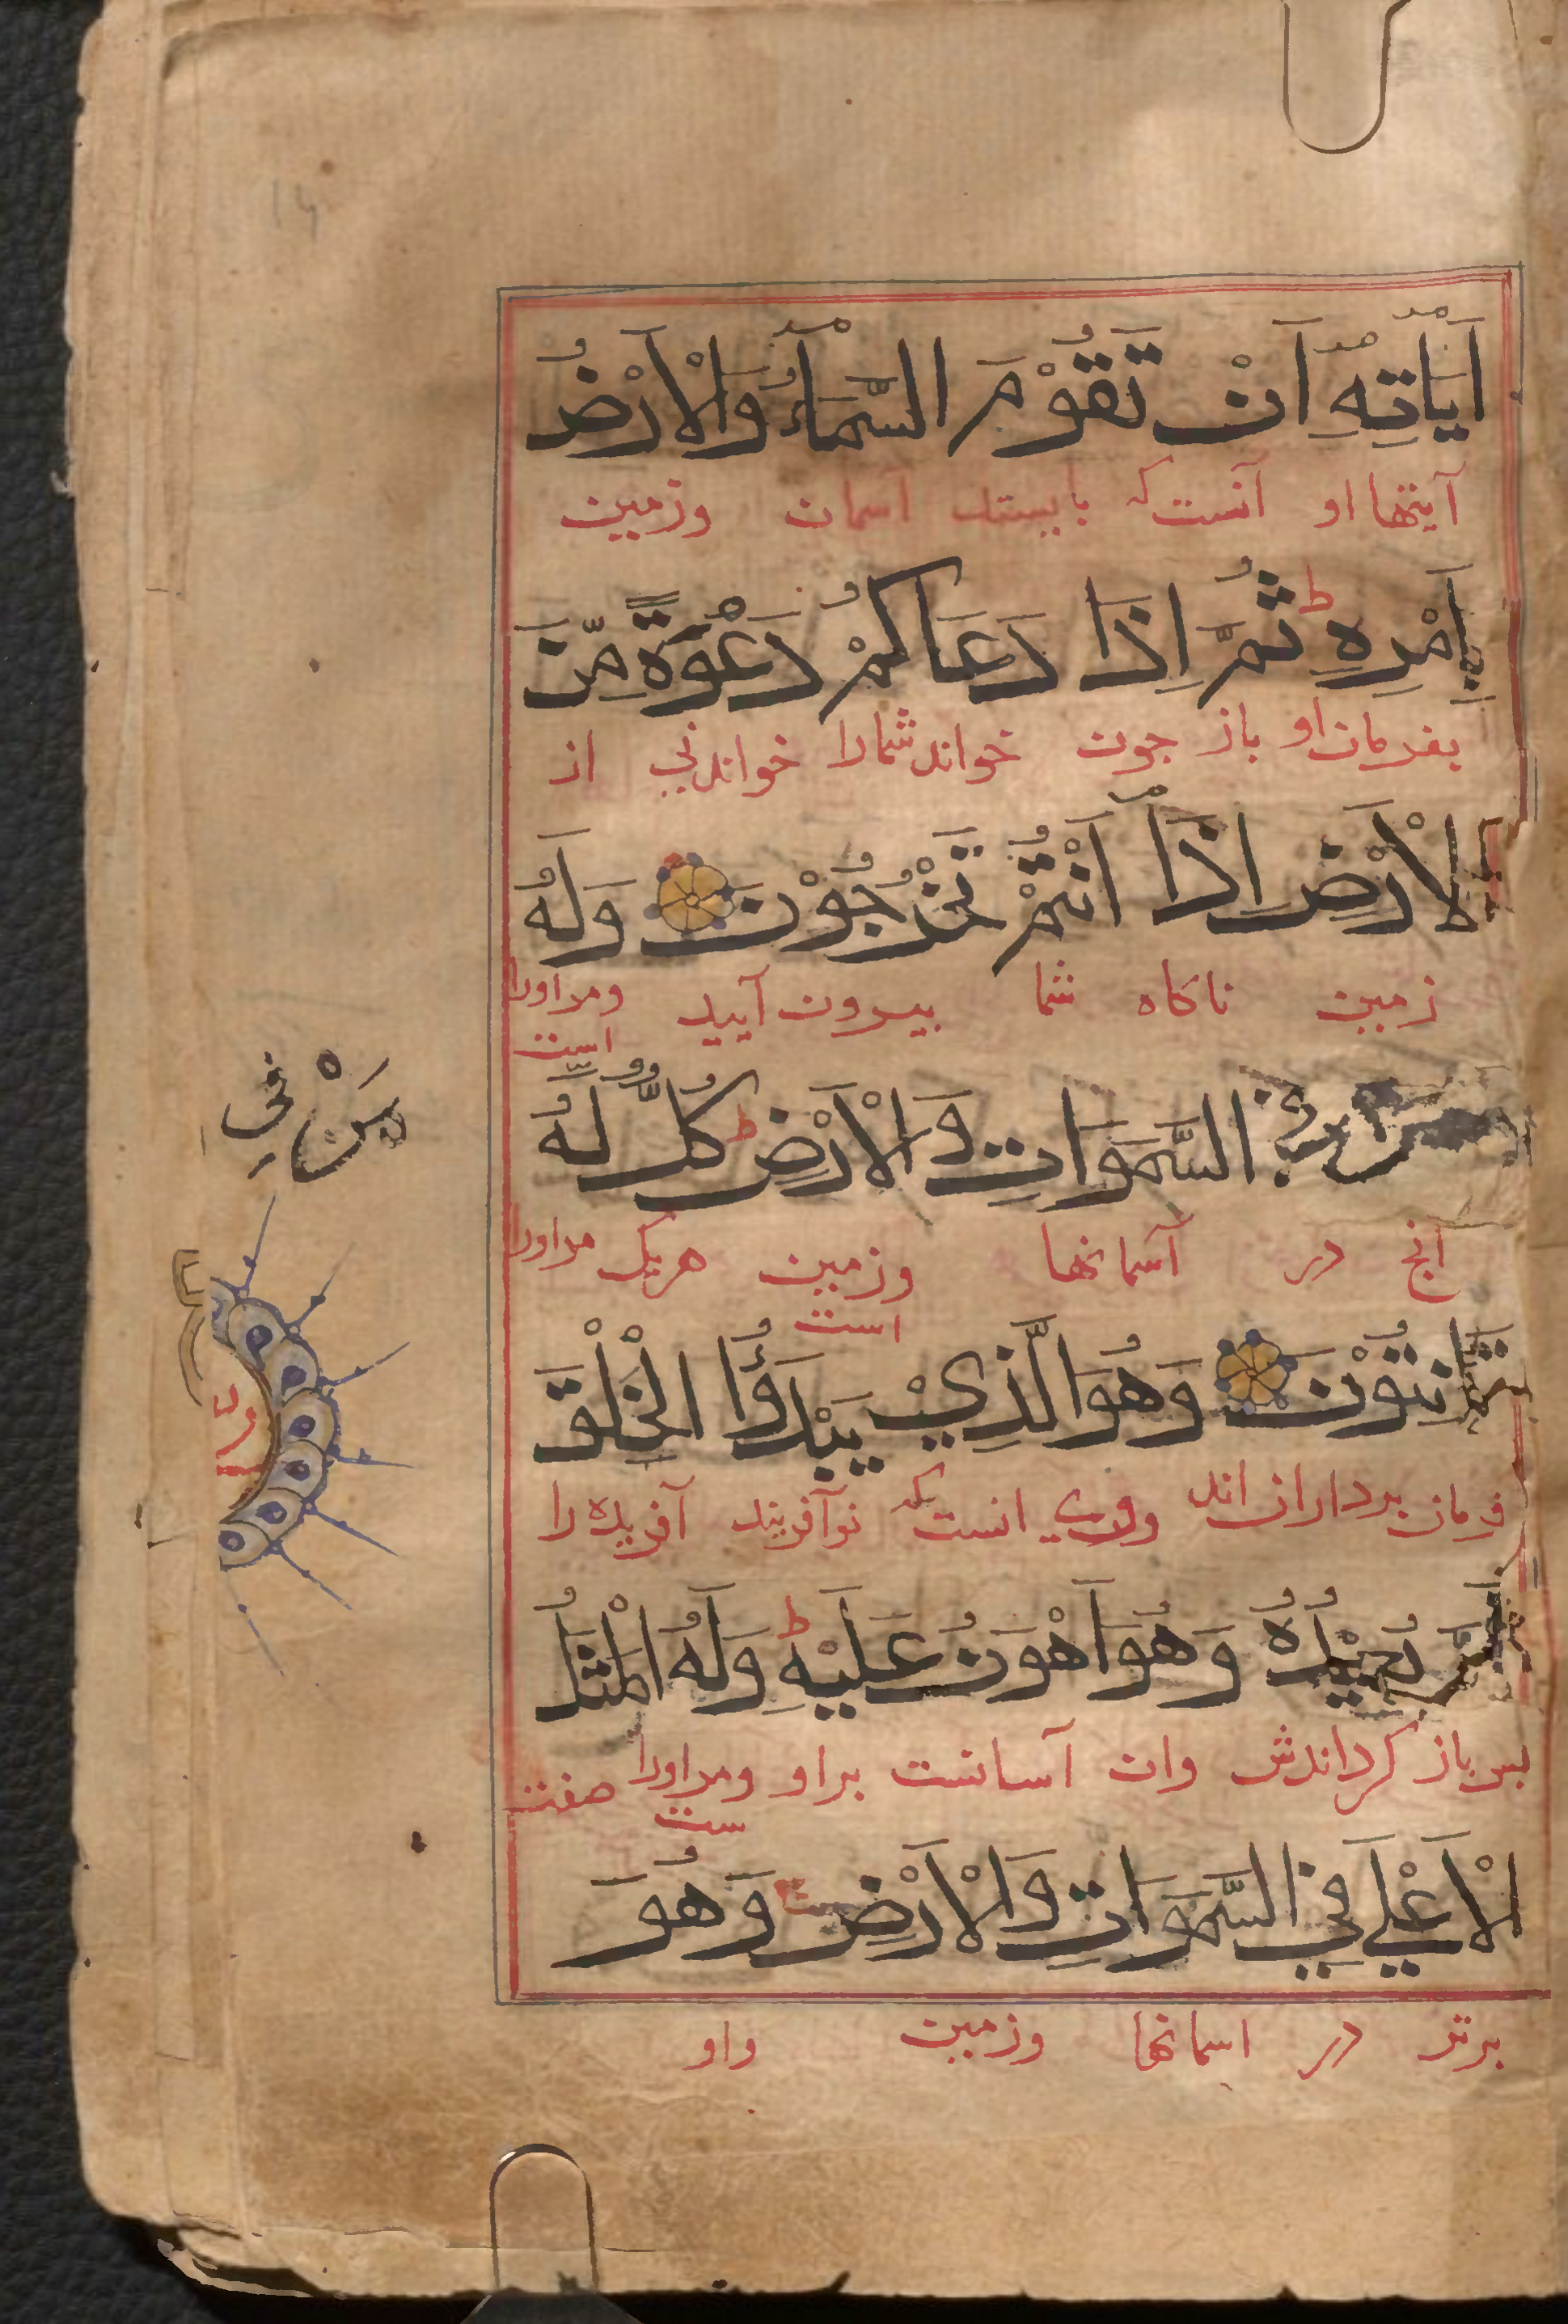 اٰيَاتِهٖ اَنْ تَقُوْمَ السَّمَآءُ وَالْاَرْضُ
آیتها او آنست که بایستد آسمان وزمین
بِاَمْرِهٖ ط ثُمَّ اِذَا دَعَاكُمْ دَعْوَةً مِّنَ
بفرمان او باز جون خواند شمارا خواندنی از
الْاَرْضِ اِذَآ اَنْتُمْ تَخْرُجُوْنَ وَلَهٗ
زمین ناکاه شما بیرون آیید ومراورا
است
مَنْ فِي
فِي السَّمَوَاتِ وَالْاَرْضِ ط كُلٌّ لَّهٗ
انج در آسمانها وزمین هریک مراورا
است
قَانِتُوْنَ وَهُوَ الَّذِيْ يَبْدَؤُا الْخَلْقَ
فرمان برداران اند وی انست که نوآفریند آفریده را
ثُمَّ يُعِيْدُهٗ وَهُوَ اَهْوَنُ عَلَيْهِ ط وَلَهُ الْمَثَلُ
بس باز کرداندش وان آسانست براو ومراورا صفت
ست
الْاَعْلَي فِي السَّمَوَاتِ وَالْاَرْضِ وَهُوَ
برتر در اسمانها وزمین واو